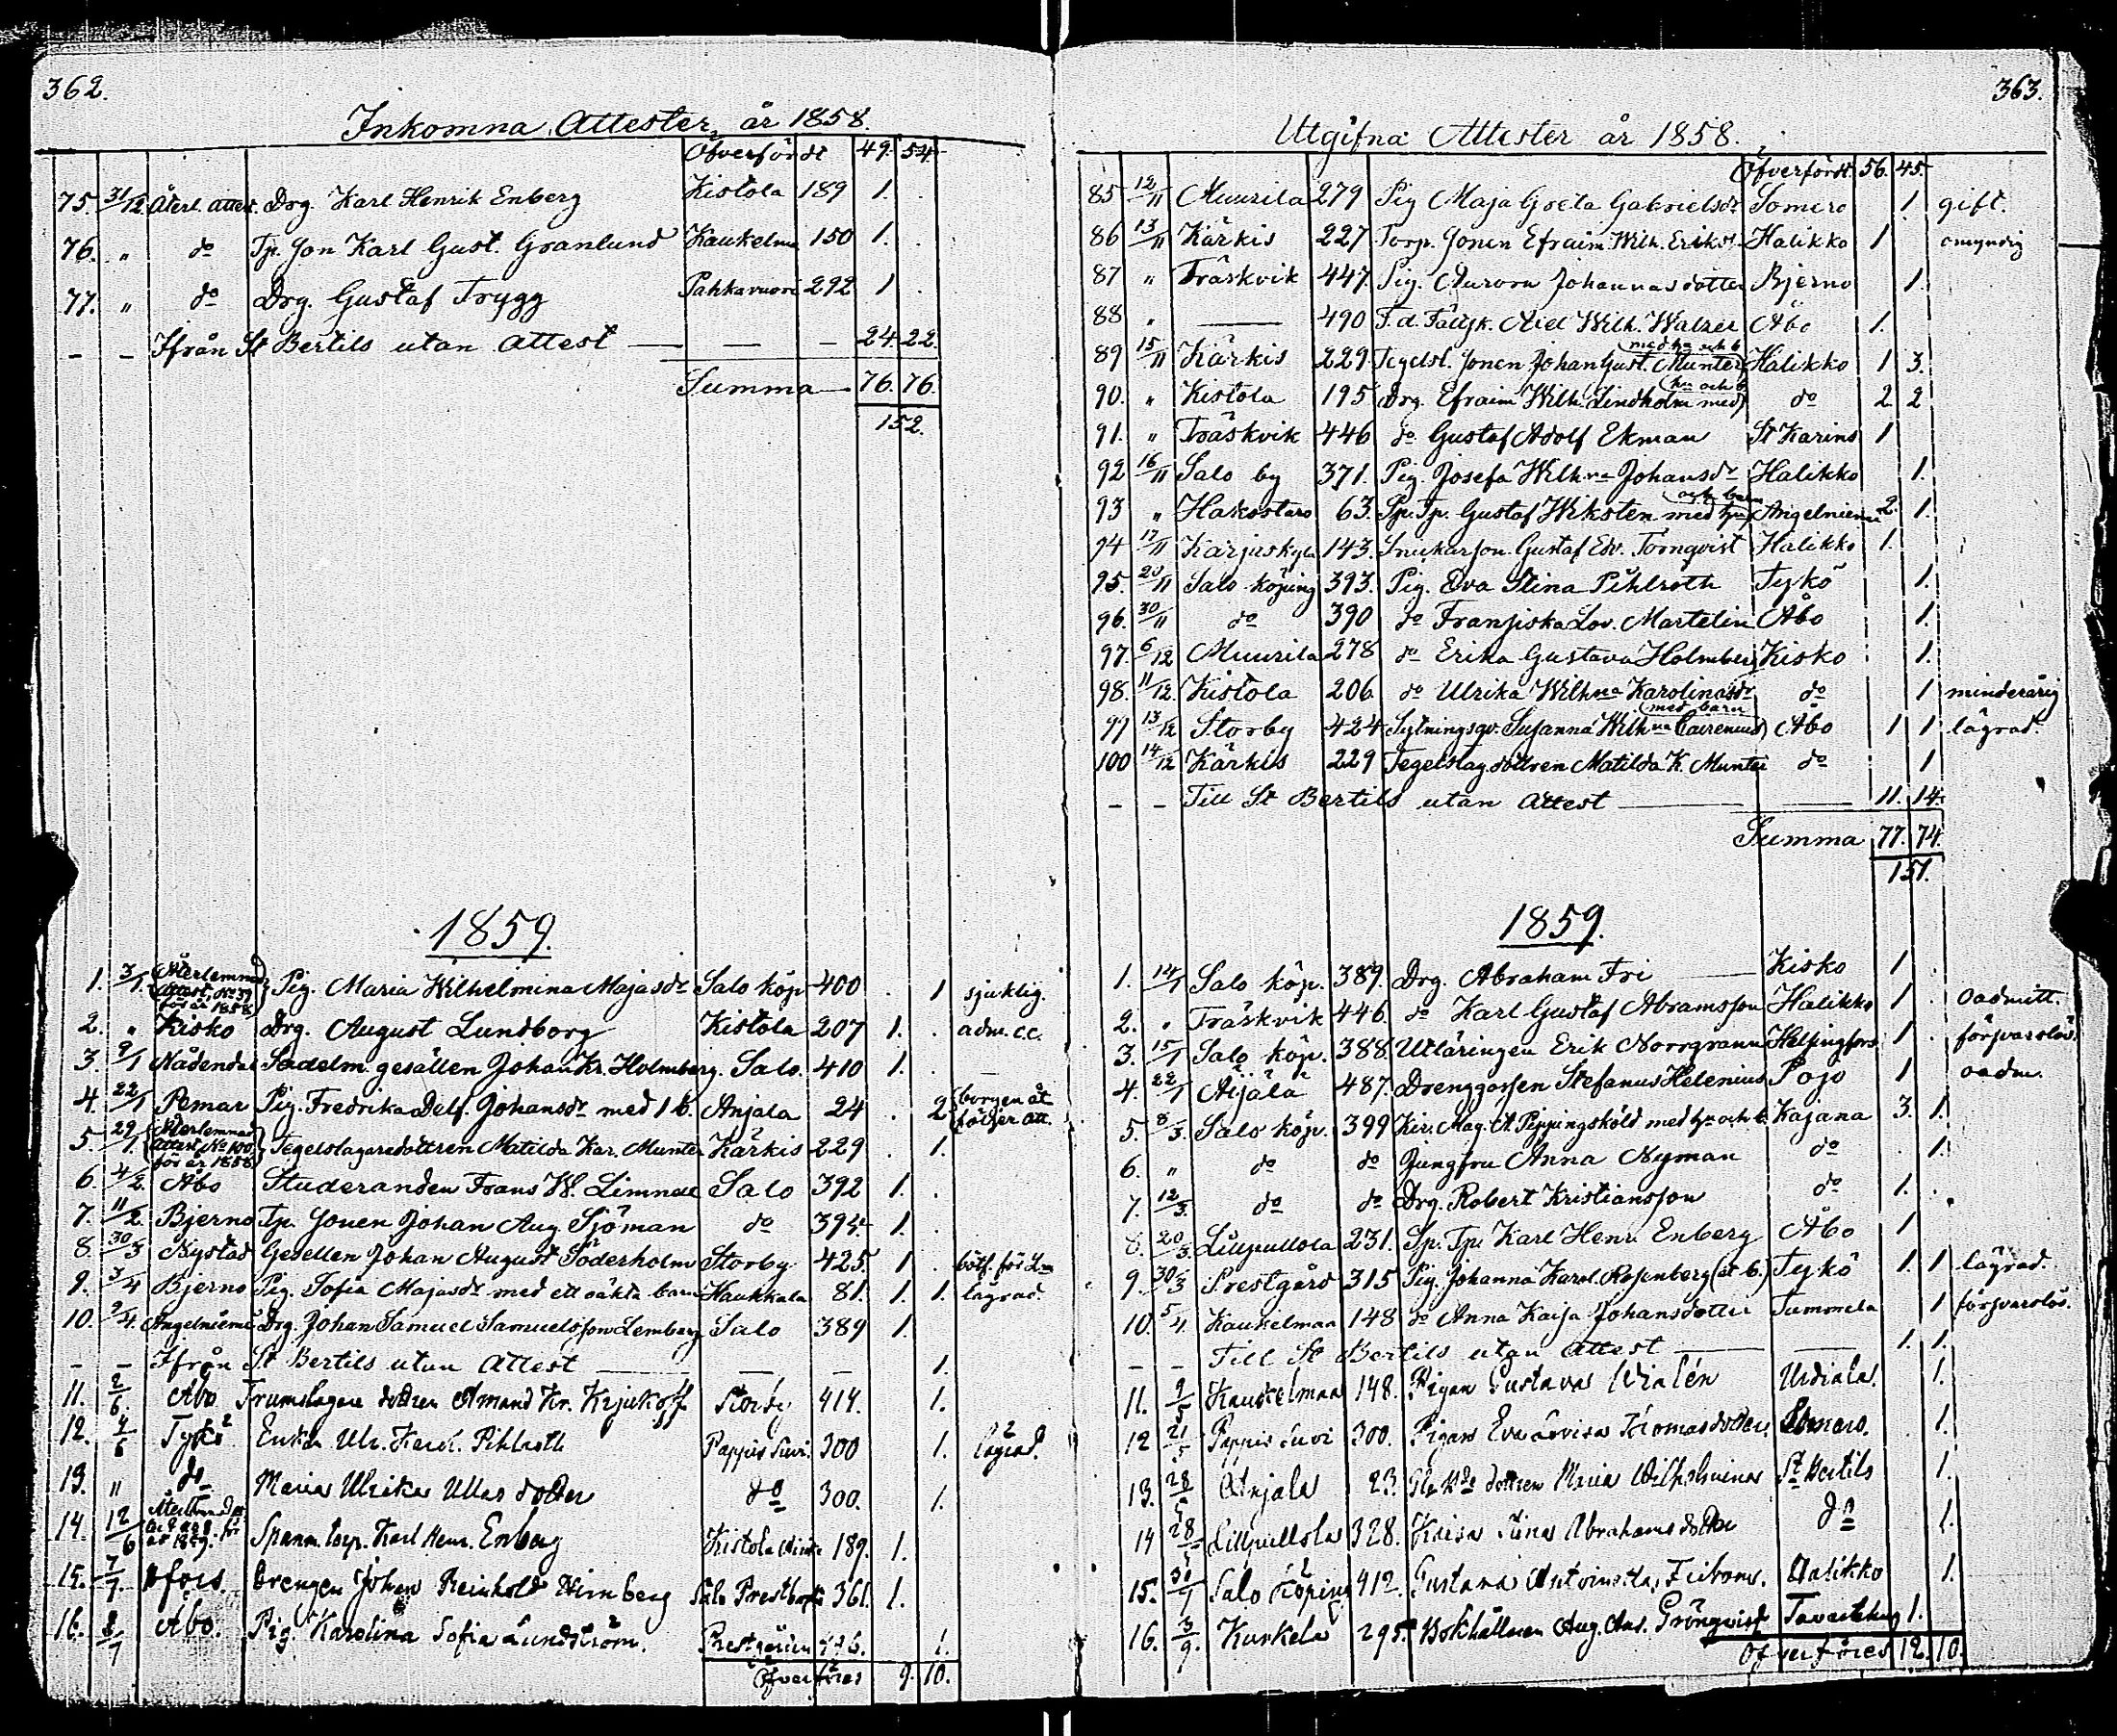 362.
Inkomna Attester år 1858.
Öfverfördt 49. 54.
75. 31/12 Återl. attest. Drg. Karl Henrik Enberg Kistola 189 1.
76. " do Tp. Son Karl Gust. Granlund Kaukelma 150 1.
77. " do Drg. Gustaf Trygg Pahkavuori 292 1
- - Ifrån St Bertils utan attest — — - 24 22.
Summa — 76. 76.
152.
1859.
1. 3/1. Återlemnad attest, No 39 för år 1858 Pig. Maria Wilhelmina Majasdr Salo köp 400 . 1 sjuklig.
2. " Kisko Drg. August Lundborg Kistola 207 1. . adm. c.c.
3. 9/1 Nådendal Sadelm. gesällen Johan Kr. Holmberg. Salo. 410 1.
4. 22/1 Pemar Pig. Fredrika Adelf. Johansdr med 1 b. Anjala 24 . 2 borgen åt
5. 29/1. Återlemnad attest No 100. för år 1858 Tegelslagaredottren Matilda Kar. Munter Kärkis 229 . 1.
6. 4/2. Åbo Studeranden Frans W. Limnell Salo 392 1. .
7. 11/2. Bjerno Tp. Sonen Johan Aug. Sjöman do 394 1.
8. 30/3 Nystad Gesellen Johan August Söderholm Storby 425. 1 .
9. 3/4 Bjerno Pig. Sofia Majasdr med ett oäkta barn Haukkala 81. 1. 1. lägrad.
10. 9/4. Angelniemi Drg. Johan Samuel Samuelsson Lemberg Salo 389 1.
- - Ifrån St Bertils utan Attest — — - 1.
11. 2/6. Åbo Trumslagare dottren Amand Kr. Krjukoff Storby 414. 1.
12. 4/6 Tykö Enkan Ulr. Karol. Pihlroth Pappis Suvi. 300 1. lägrad.
13. " do Maria Ulrika Ullas dotter do 300. 1.
14. 12/6 Återlemnad att. No 8 för år 1859. Spanm. torp. Karl Henr. Enberg Kistola 189. 1.
15. 7/7. Hfors. Drengen Johan Reinhold Hirnberg Salo Prestbost 361. 1.
16. 8/7 Åbo. Pig. Karolina Sofia Lundström. Prestgården 1.
Öfverföres 9. 10.
363.
Utgifna Attester år 1858.
Öfverfördt. 56. 45.
85 12/11 Muurila 279 Pig Maja Greta Gabrielsdr Somero 1. gift.
86 13/11 Kärkis 227 Torp. Sonen Efraim Wilh. Eriks. Halikko 1 omyndig
87 " Träskvik 447. Pig. Aurora Johannasdotter Bjerno 1.
88 " — 490 F.d. Fältsk. Axel Wilh. Walzer Åbo 1.
89 15/11 Kärkis 229 Tegelsl. Sonen Johan Gust. Munter med hu och b Halikko 1 3.
90. " Kistola 195 Drg. Efraim Wilh. Lindholm med hu och b do 2 2
91. " Träskvik 446 do Gustaf Adolf Ekman St Karins 1
92 16/11 Salo by 371. Pig. Josefa Wilhna Johansdr Halikko 1.
93 " Hakostaro 63. Sp. Tp. Gustaf Wiksten med hu och barn Angelniemi 2. 1.
94 17/11 Karjaskylä 143. Snickarson. Gustaf Edv. Törnqvist Halikko 1.
95. 20/11 Salo köping 393. Pig. Eva Stina Pihlroth Tykö 1.
96. 30/11 do 390 do Fransiska Lov. Martelin Åbo 1.
97. 6/12 Muurila 278 do Erika Gustava Holmberg Kisko 1.
98. 11/12. Kistola 206 do Ulrika Wilhna Karolinasdr do 1 minderårig
99 13/12 Storby 424 Sytningsqv. Susanna Wilhna Cairenius med barn Åbo 1 1 lägrad.
100 14/12 Kärkis 229 Tegelslag.dottren Matilda K. Munter do 1
- - Till St Bertils utan attest — — 11. 14.
Summa 77. 74.
151.
1859.
1. 14/1 Salo köp. 389. Drg. Abraham Fri — Kisko 1 .
2. " Träskvik 446. do Karl Gustaf Abramsson Halikko 1 . oadmitt.
3. 15/1 Salo köp. 388. Utläringen Erik Norrgrann Helsingfors 1 . försvarslös.
4. 22/1 Äijälä 487. Drenggossen Stefanus Helenius Pojo 1 oadm.
5. 8/3. Salo köp. 399 Kir. Mag. A. Pippingsköld med hu och b. Kajana 3. 1.
6. " do do Jungfru Anna Nyman do . 1.
7. 12/3. do do Drg. Robert Kristiansson do 1. .
8. 20/3. Lillpullola 231. Sp. Tp. Karl Henr. Enberg Åbo 1
9. 30/3 Prestgård 315 Pig. Johanna Karol. Rosenberg (et b.) Tykö 1. 1 lägrad.
10. 5/4. Kaukelmaa 148 do Anna Kajsa Johansdotter Tammela 1 försvarslös.
- - Till St Bertils utan Attest — — 1. 1.
11. 9/5 Kaukelmaa 148. Pigan Gustava Wialén Urdiala. 1.
12 21/5 Pappis Suvi 300. Pigan Eva Lovisa Thomasdotter Somero. 1.
13. 28/5 Anjala 23. dottren Maria Wilhelmina St Bertils 1.
14 28/5 Lillpullola 328. Kaisa Stina Abrahamsdotter do 1.
15. 30/7 Salo Köping 412. Gustava Antoinetta Halikko 1.
16. 3/9. Kurkela 295. Bokhållaren Aug. And. Grönqvist Tavastehus 1.
Öfverföres 12. 10.